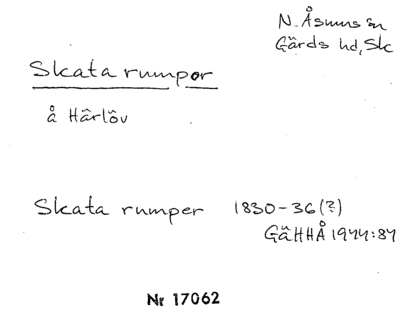 N. Åsums sn
Gärds hd, Sk
Skata rumpor
å Härlöv
Skata rumper 1830-36(?)
GäHHÅ 1944:87
Nr 17062